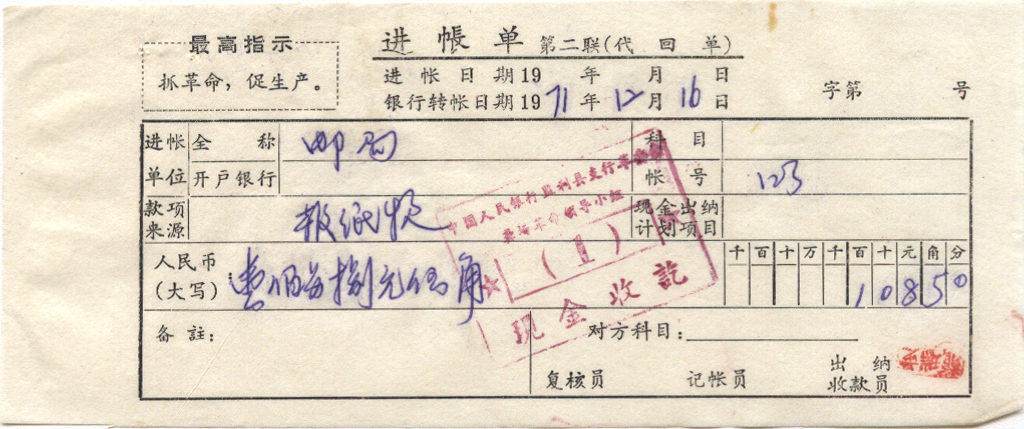 最高指示
抓革命，促生产。
进帐单 第二联(代回单)
进帐日期19 年 月 日
银行转帐日期1971年12月16日
字第 号
进帐单位 全称 邮局 科目
开户银行 帐号 123
款项来源 报纸收 现金出纳计划项目
人民币(大写): 壹佰另捌元伍角
千百十万千百十元角分
10850
中国人民银行监利县支行
营业革命领导小组
(1)
现金收讫
备註: 对方科目:
复核员 记帐员 出纳收款员